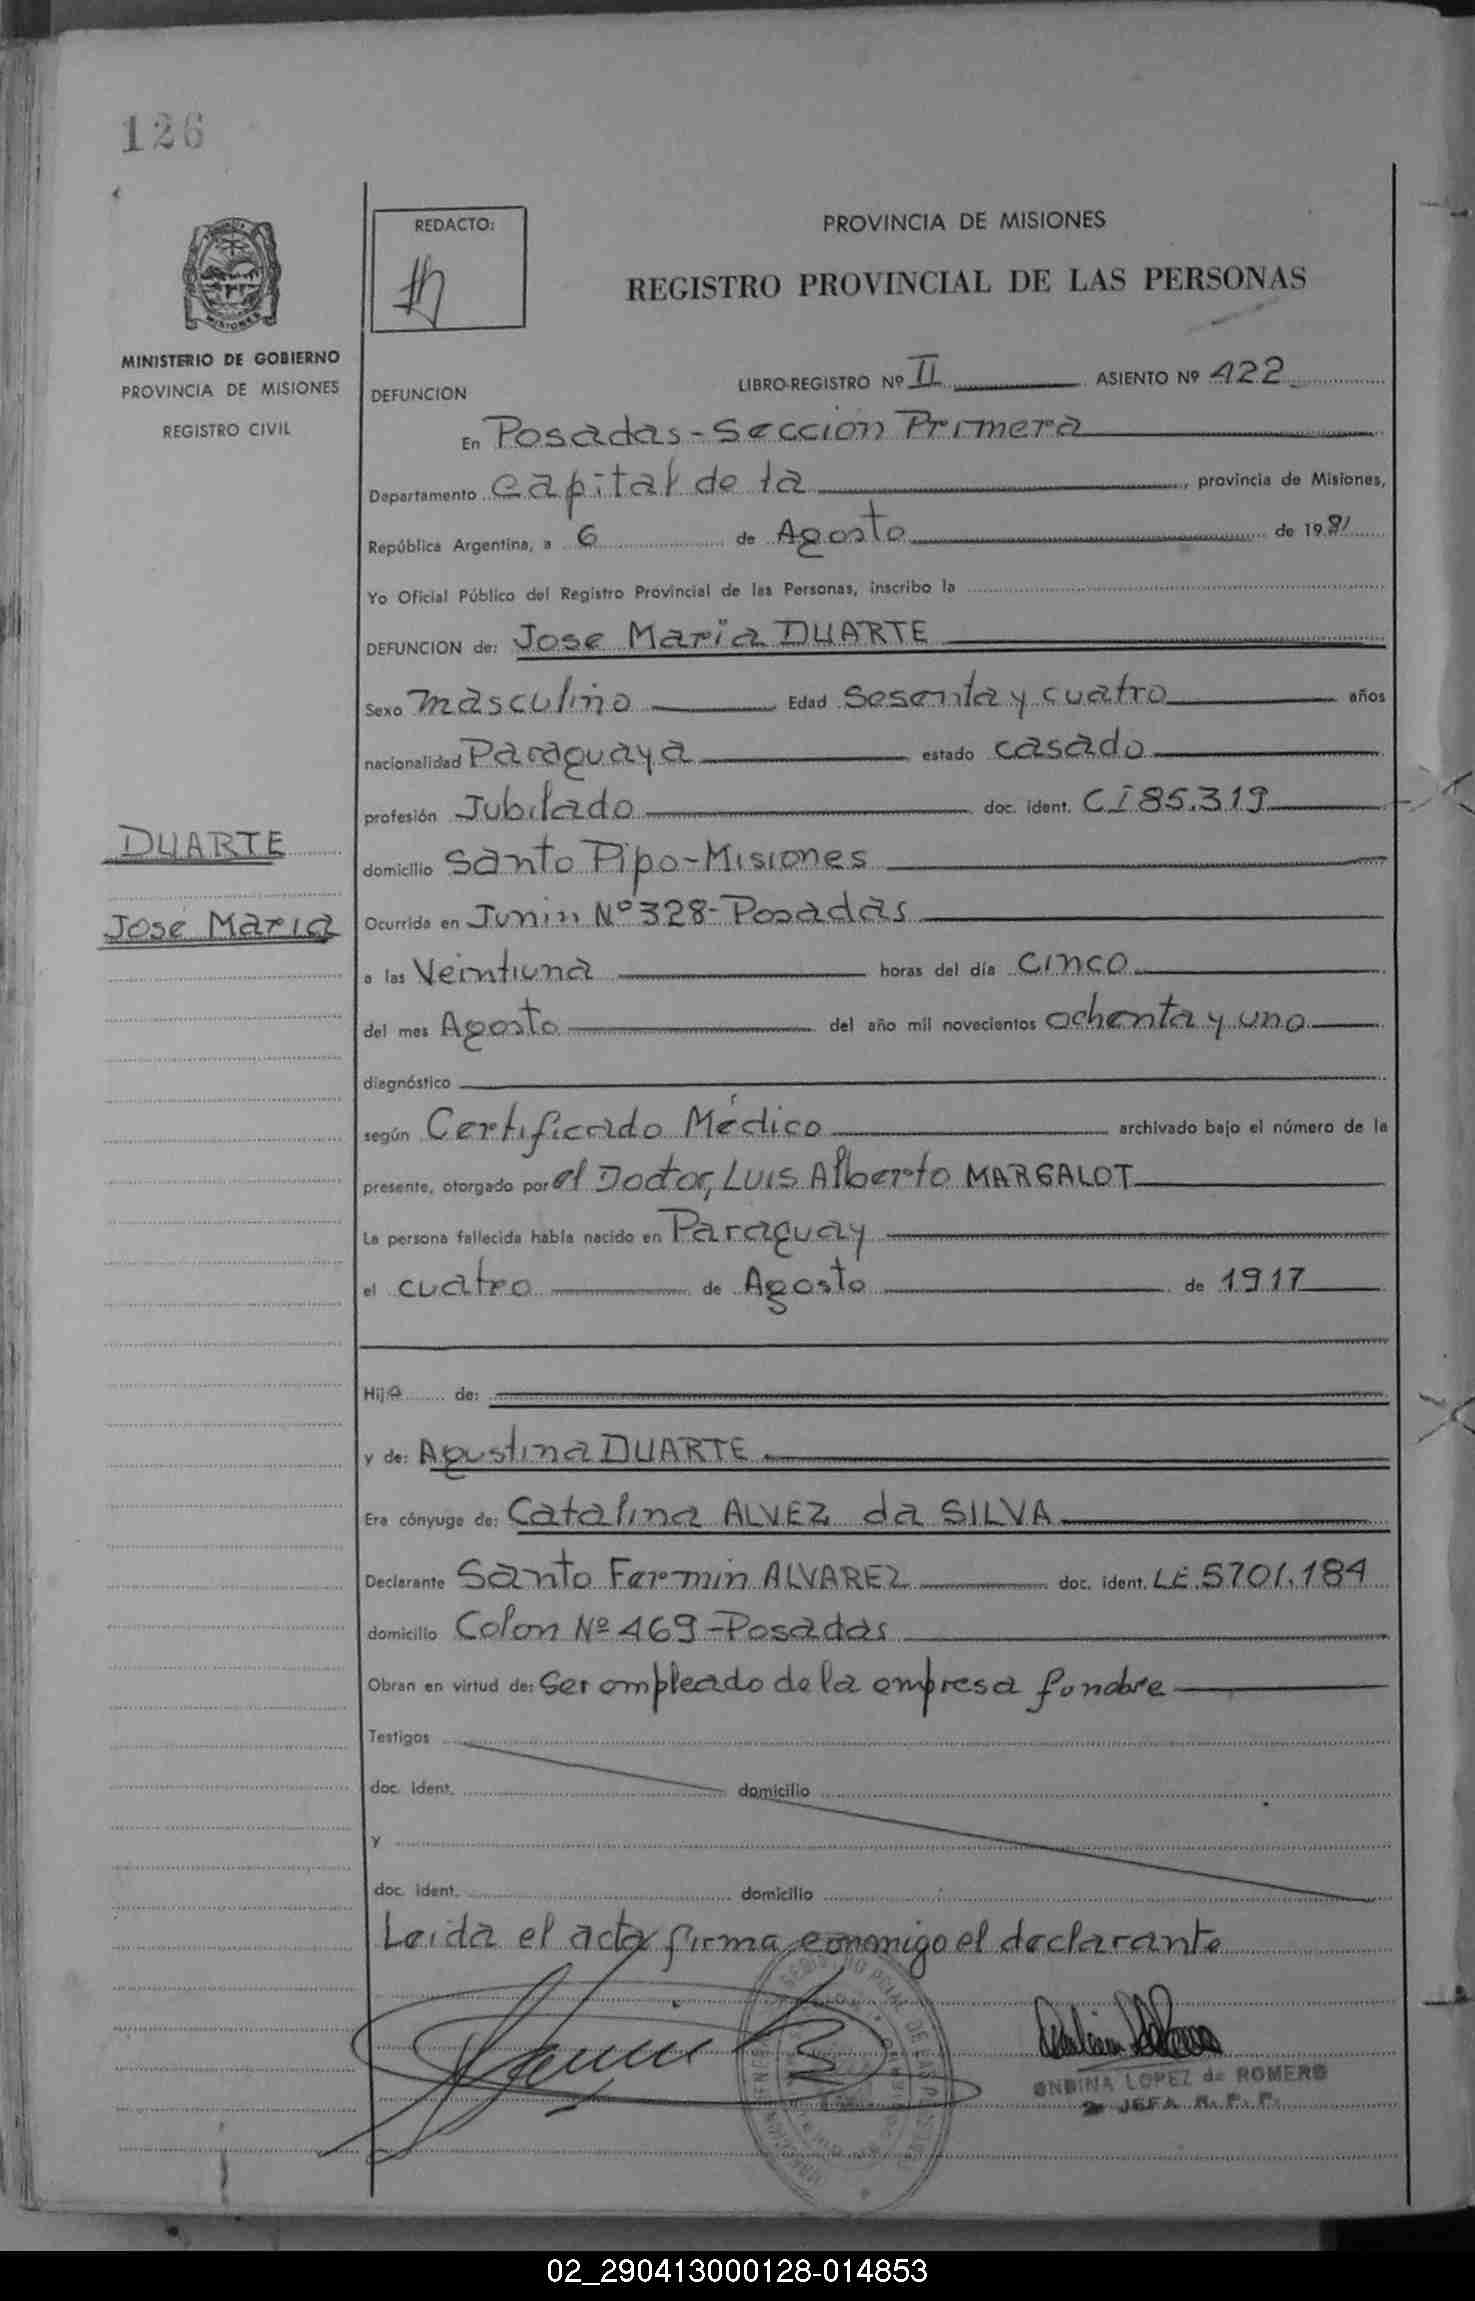 126
MINISTERIO DE GOBIERNO
PROVINCIA DE MISIONES
REGISTRO CIVIL
DUARTE
José María
REDACTO:
PROVINCIA DE MISIONES
REGISTRO PROVINCIAL DE LAS PERSONAS
DEFUNCION LIBRO-REGISTRO Nº II ASIENTO Nº 422
En Posadas-Sección Primera
Departamento Capital de la, provincia de Misiones,
República Argentina, a 6 de Agosto de 1981
Yo Oficial Público del Registro Provincial de las Personas, inscribo la
DEFUNCION de: José María DUARTE
Sexo masculino Edad Sesenta y cuatro años
nacionalidad Paraguaya estado casado
profesión Jubilado doc. ident. CI 85.319
domicilio Santo Pipo-Misiones
Ocurrida en Junin Nº 328-Posadas
a las Veintiuna horas del día cinco
del mes Agosto del año mil novecientos ochenta y uno
diagnóstico
según Certificado Médico archivado bajo el número de la
presente, otorgado por el Doctor, Luis Alberto MARGALOT
La persona fallecida había nacido en Paraguay
el cuatro de Agosto de 1917
Hijo de:
y de: Agustina DUARTE
Era cónyuge de: Catalina ALVEZ da SILVA
Declarante Santo Fermin ALVAREZ doc. ident. LE.5701.184
domicilio Colon Nº 469-Posadas
Obran en virtud de: Ser empleado de la empresa funebre
Testigos
doc. ident. domicilio
y
doc. ident. domicilio
Leida el acta firma conmigo el declarante
ONDINA LOPEZ de ROMERO
JEFA R. P. P.
02_290413000128-014853